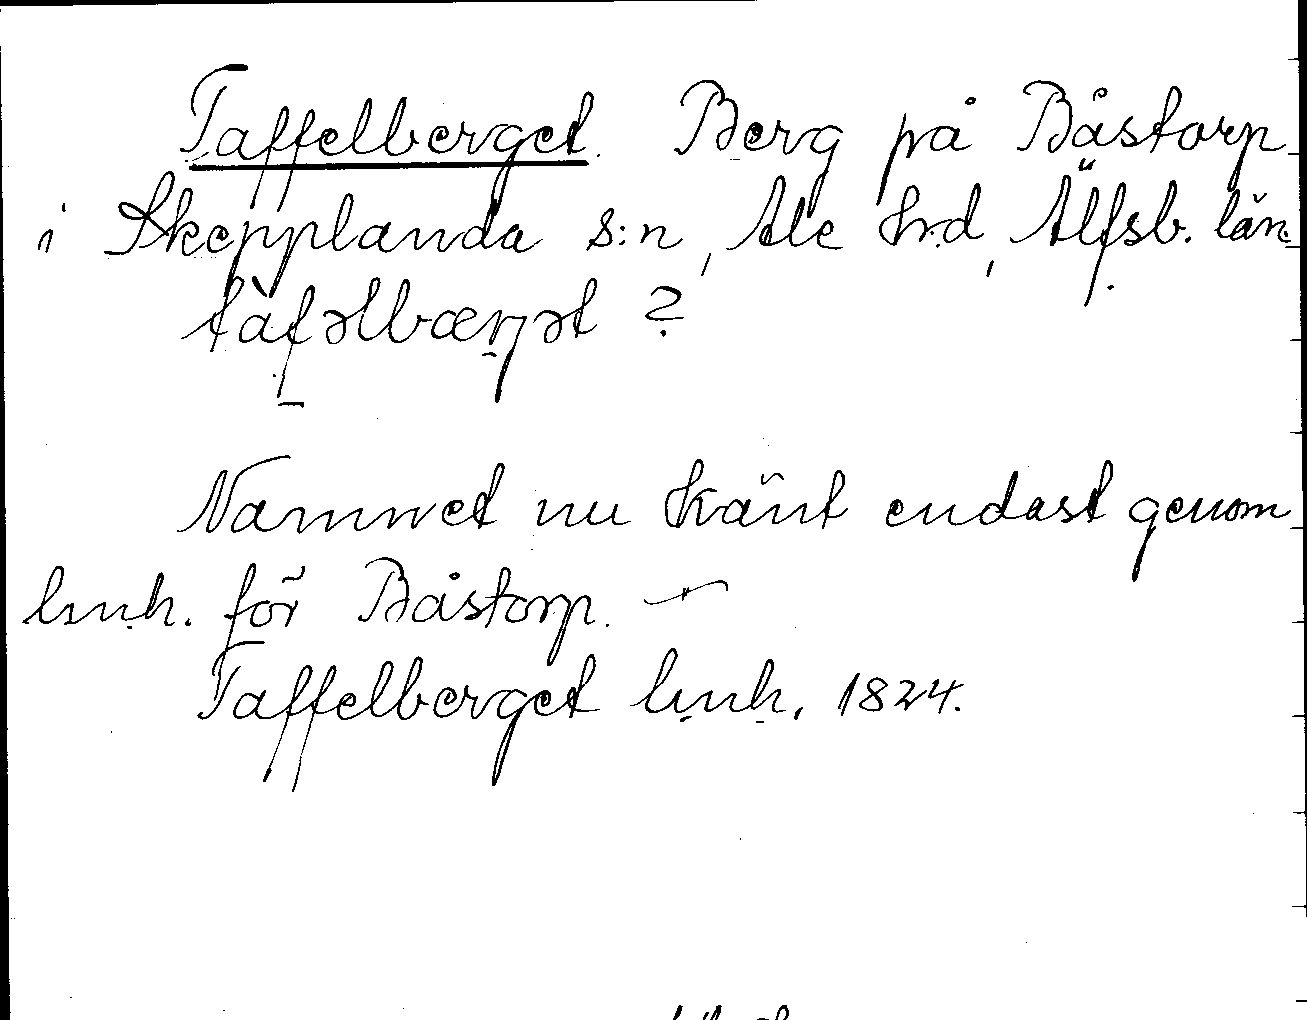 Taffelberget. Berg på Båstorp
i Skepplanda s:n, Ale hrd, Älfsb. län.
tàfəlbærjət ?
Namnet nu känt endast genom
lmh. för Båstorp. —
Taffelberget lmh. 1824.